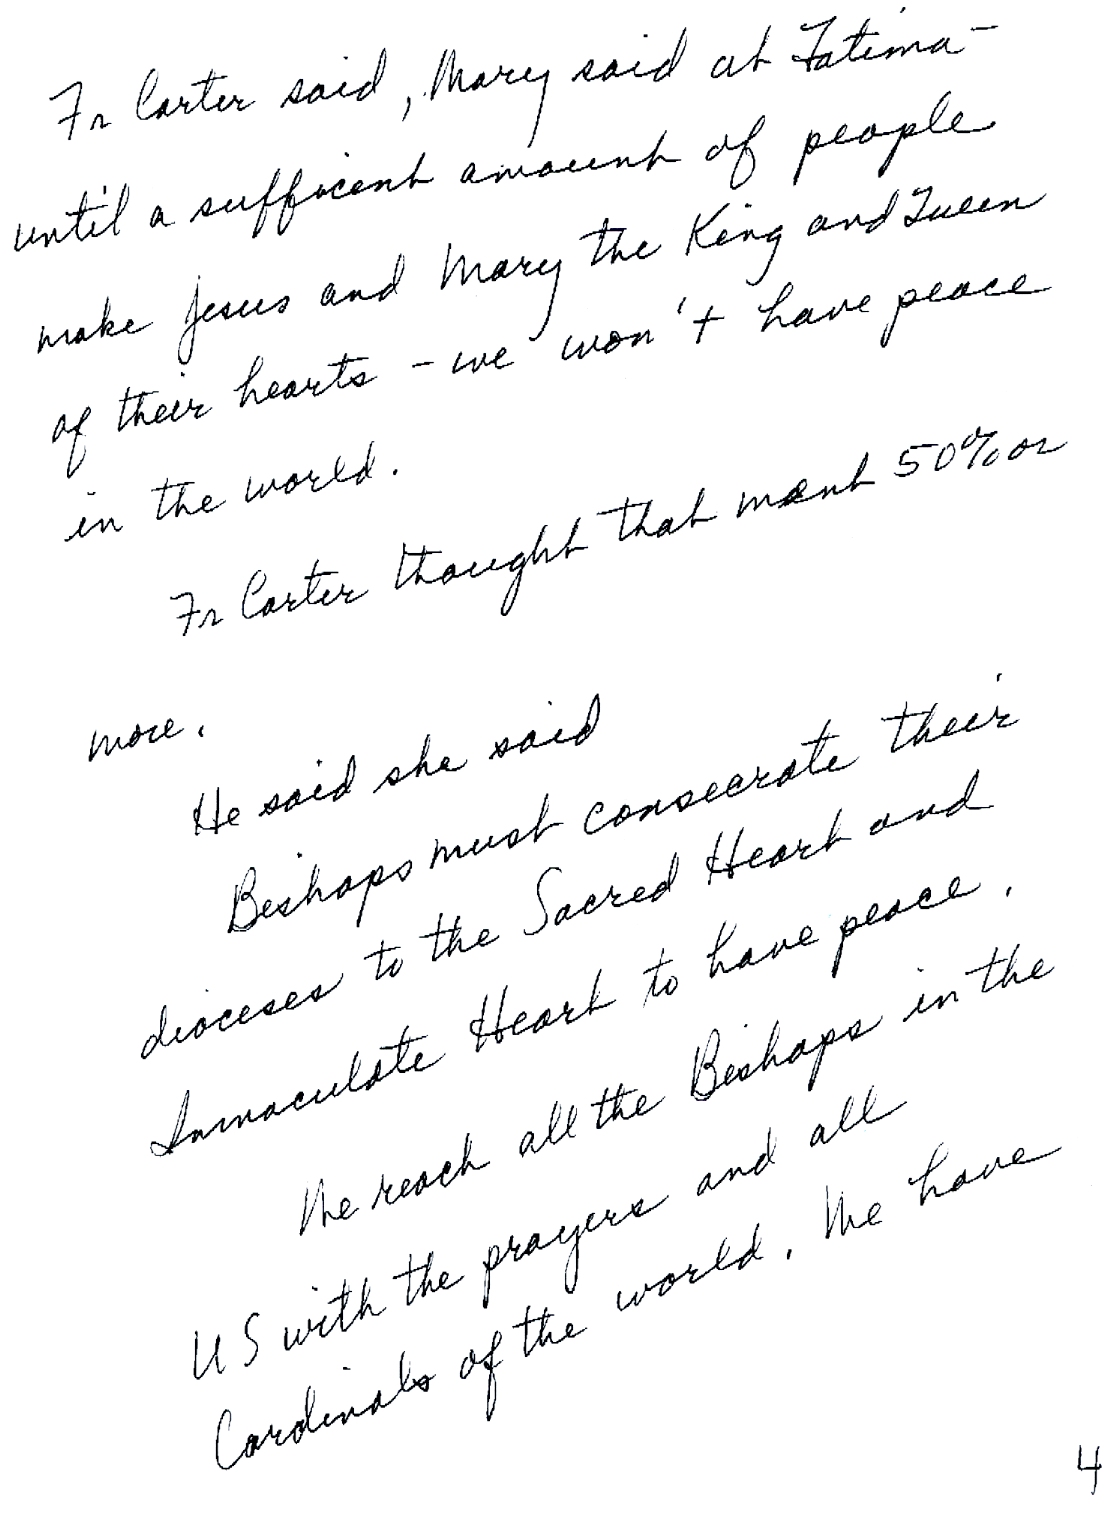 Fr Carter said, Mary said at Fatima -
until a sufficent amount of people
make Jesus and Mary the King and Queen
of their hearts - we won't have peace
in the world.
Fr Carter thought that ment 50% or
more.
He said she said
Bishops must consecrate their
dioceses to the Sacred Heart and
Immaculate Heart to have peace.
We reach all the Bishops in the
US with the prayers and all
Cardinals of the world. We have
4